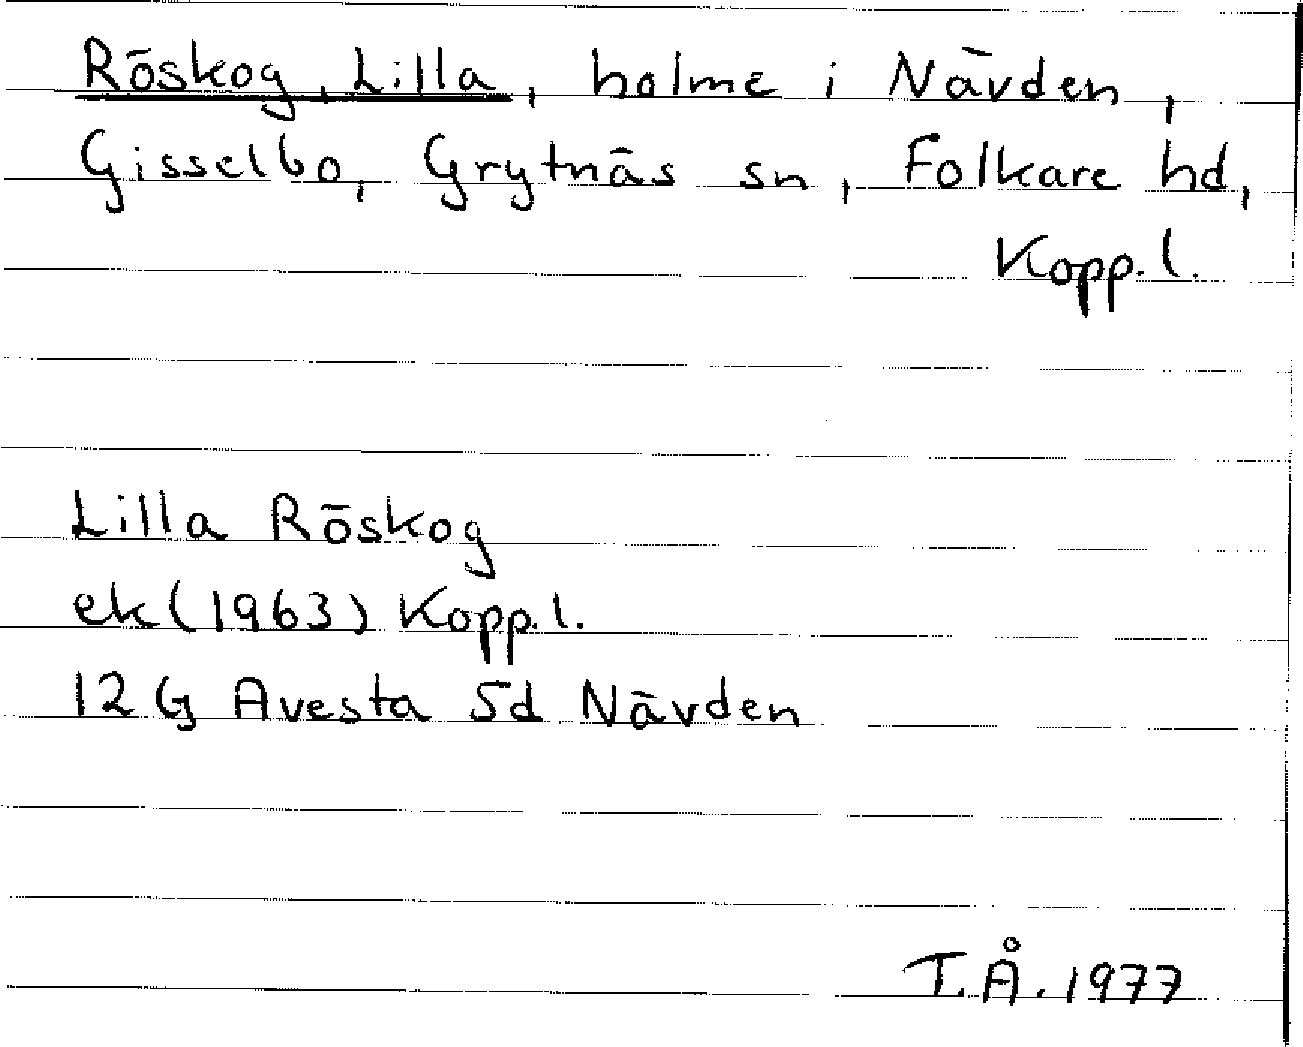 Röskog, Lilla, holme i Nävden,
Gisselbo, Grytnäs sn, Folkare hd,
Kopp.l.
Lilla Röskog
ek (1963) Kopp.l.
12 G Avesta 5d Nävden
T.Å. 1977